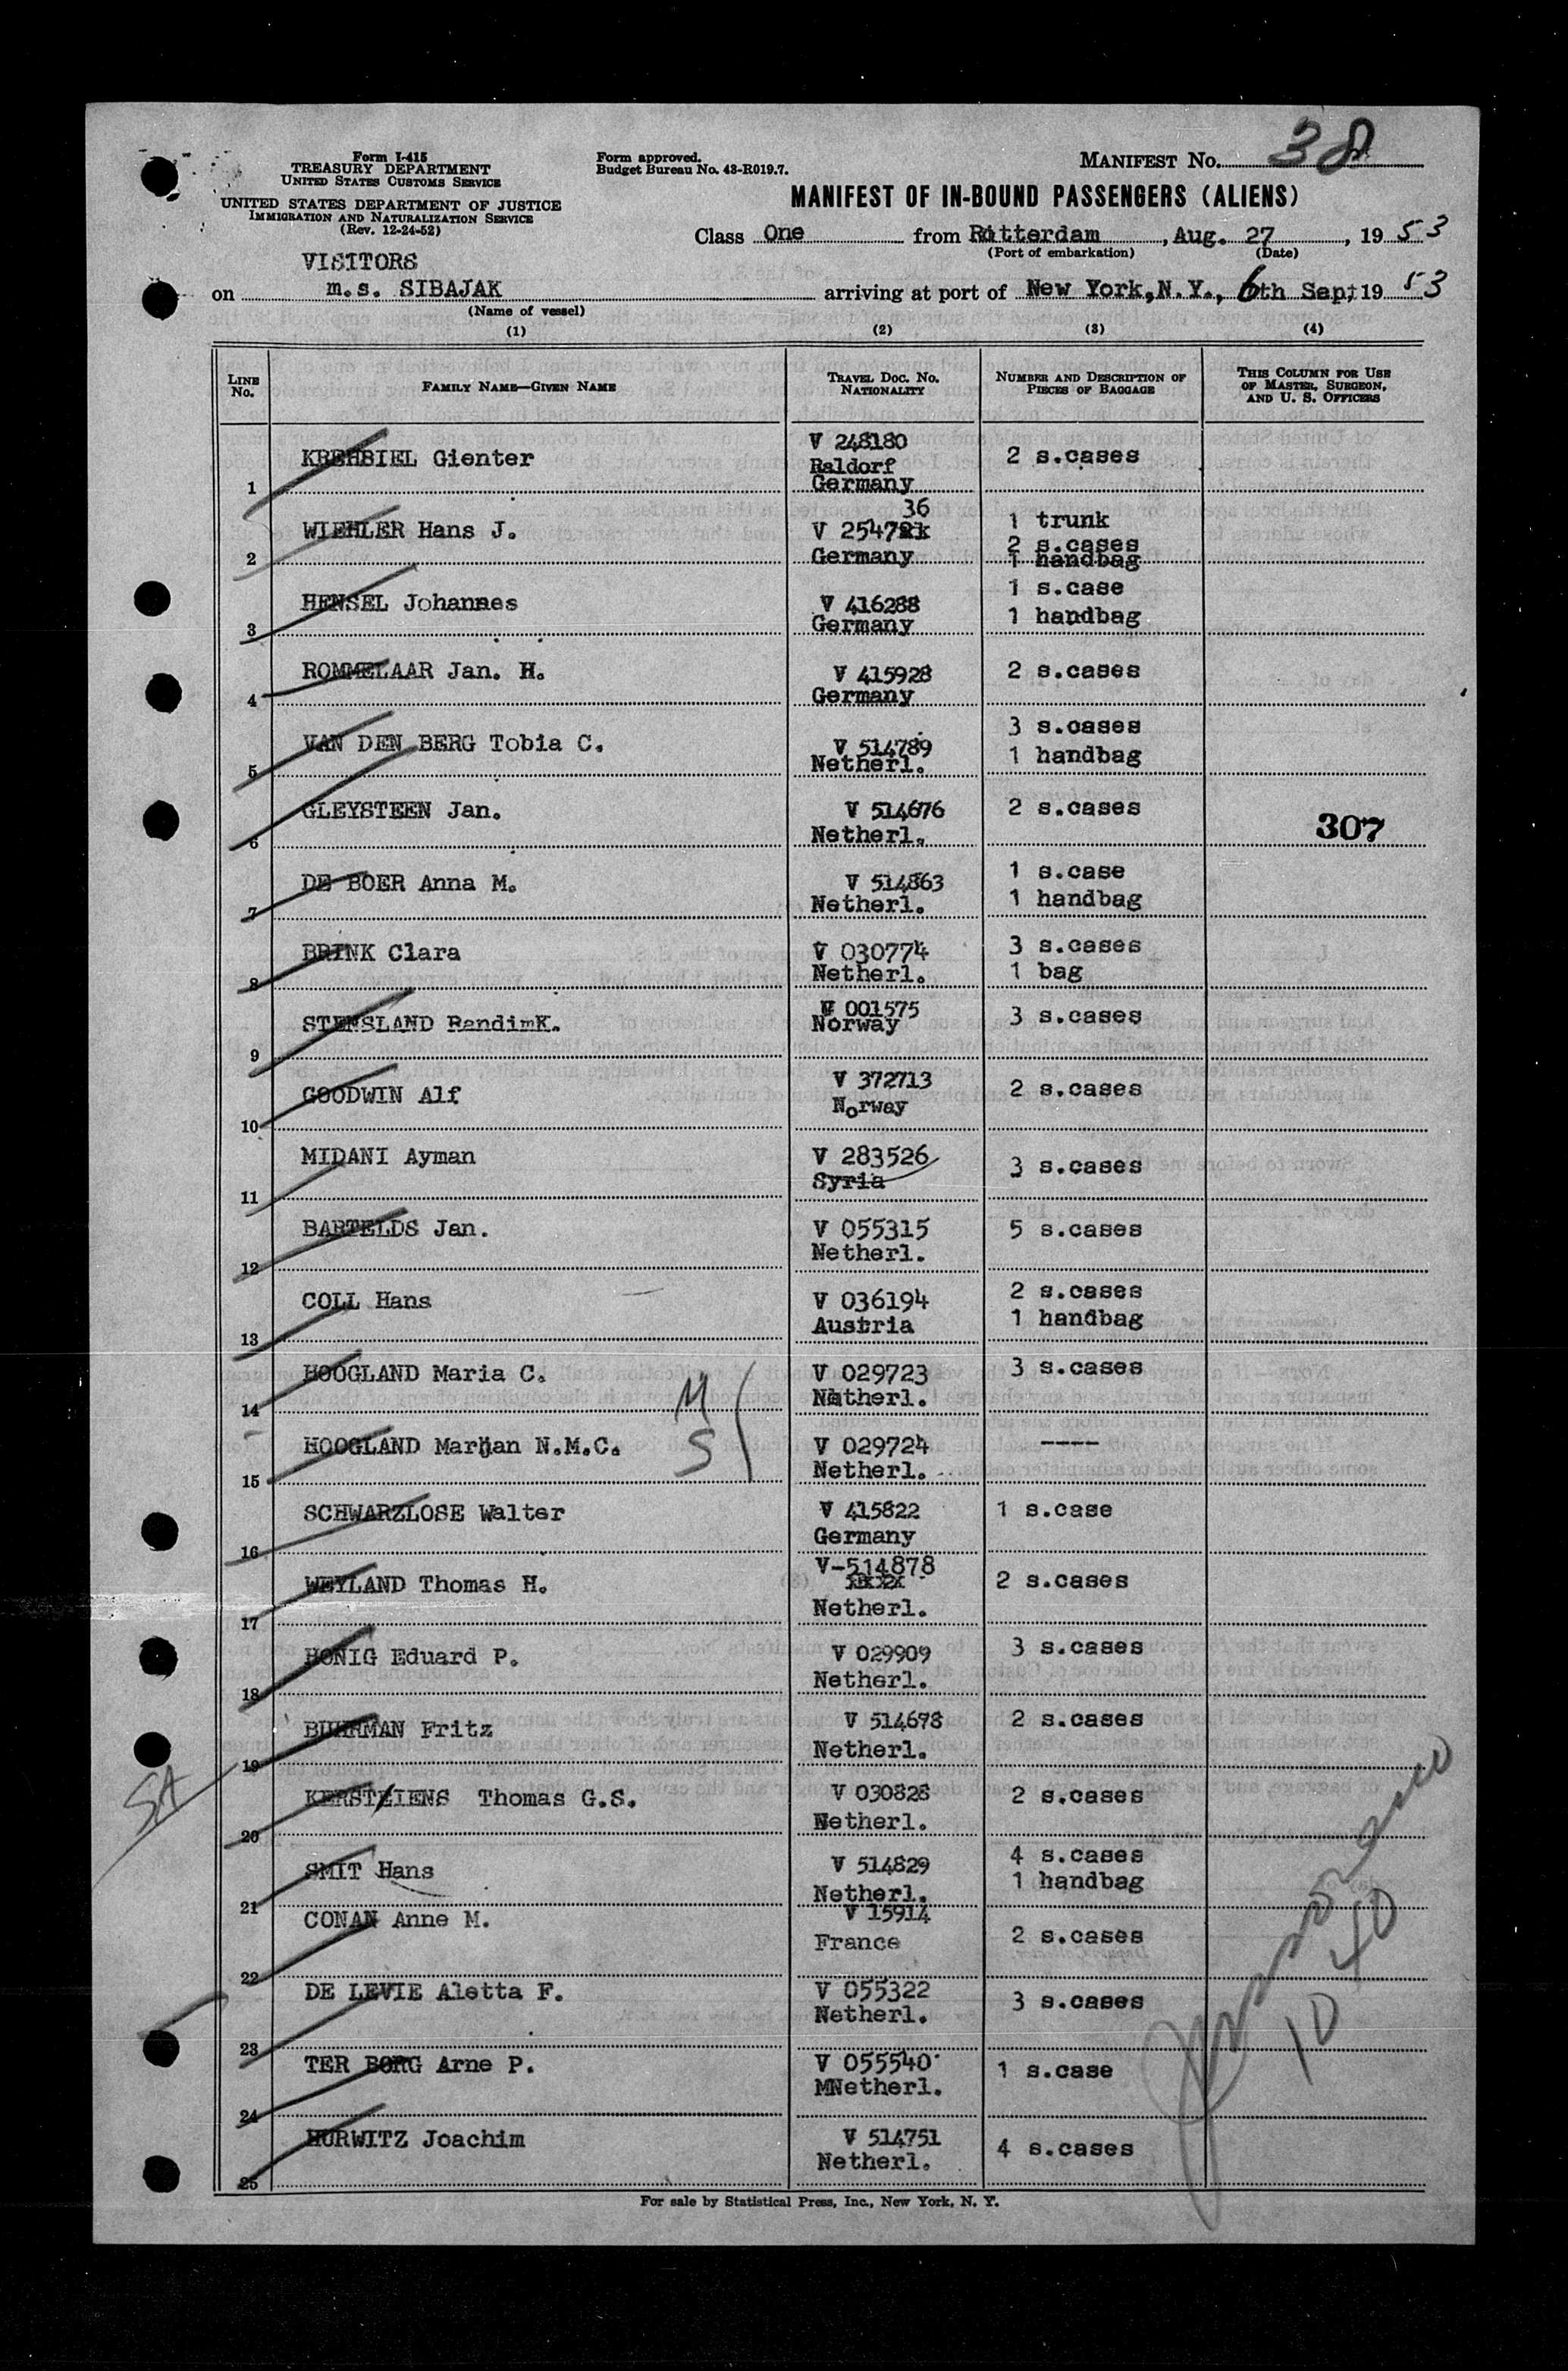 Form I-415
TREASURY DEPARTMENT
UNITED STATES CUSTOMS SERVICE
UNITED STATES DEPARTMENT OF JUSTICE
IMMIGRATION AND NATURALIZATION SERVICE
(Rev. 12-24-52)
Form approved.
Budget Bureau No. 43-R019.7.
MANIFEST No. 38
MANIFEST OF IN-BOUND PASSENGERS (ALIENS)
Class One from Rotterdam, Aug. 27, 1953
(Port of embarkation) (Date)
VISITORS
on m.s. SIBAJAK arriving at port of New York,N.Y., 6th Sept 1953
(Name of vessel)
(1) (2) (3) (4)
LINE No. FAMILY NAME—GIVEN NAME TRAVEL DOC. NO. NATIONALITY NUMBER AND DESCRIPTION OF PIECES OF BAGGAGE THIS COLUMN FOR USE OF MASTER, SURGEON, AND U. S. OFFICERS
1 KREHBIEL Gienter V 248180 Raldorf Germany 2 s.cases
2 WIEHLER Hans J. V 254736 Germany 1 trunk 2 s.cases 1 handbag
3 HENSEL Johannes V 416288 Germany 1 s.case 1 handbag
4 ROMMELAAR Jan. H. V 415928 Germany 2 s.cases
5 VAN DEN BERG Tobia C. V 514789 Netherl. 3 s.cases 1 handbag
6 GLEYSTEEN Jan. V 514676 Netherl. 2 s.cases
307
7 DE BOER Anna M. V 514863 Netherl. 1 s.case 1 handbag
8 BRINK Clara V 030774 Netherl. 3 s.cases 1 bag
9 STENSLAND RandimK. V 001575 Norway 3 s.cases
10 GOODWIN Alf V 372713 Norway 2 s.cases
11 MIDANI Ayman V 283526 Syria 3 s.cases
12 BARTELDS Jan. V 055315 Netherl. 5 s.cases
13 COLL Hans V 036194 Austria 2 s.cases 1 handbag
14 HOOGLAND Maria C. M V 029723 Netherl. 3 s.cases
15 HOOGLAND Marjan N.M.C. S V 029724 Netherl. ----
16 SCHWARZLOSE Walter V 415822 Germany 1 s.case
17 WEYLAND Thomas H. V-514878 Netherl. 2 s.cases
18 HONIG Eduard P. V 029909 Netherl. 3 s.cases
19 BUHRMAN Fritz V 514678 Netherl. 2 s.cases
SA
20 KERSTEIENS Thomas G.S. V 030828 Netherl. 2 s.cases
21 SMIT Hans V 514829 Netherl. 4 s.cases 1 handbag
22 CONAN Anne M. V 15914 France 2 s.cases
10 40
23 DE LEVIE Aletta F. V 055322 Netherl. 3 s.cases
24 TER BORG Arne P. V 055540 MNetherl. 1 s.case
25 HURWITZ Joachim V 514751 Netherl. 4 s.cases
For sale by Statistical Press, Inc., New York, N. Y.